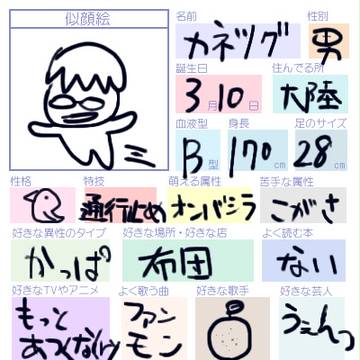 似顔絵
名前 性別
カネツグ 男
誕生日 住んでる所
3月10日 大陸
血液型 身長 足のサイズ
B型 170cm 28cm
性格 特技 萌える属性 苦手な属性
通行止め オンバシラ こがさ
好きな異性のタイプ 好きな場所・好きな店 よく読む本
かっぱ 布団 ない
好きなTVやアニメ よく歌う曲 好きな歌手 好きな芸人
もっと ファン うぇんつ
あつくなれ モン